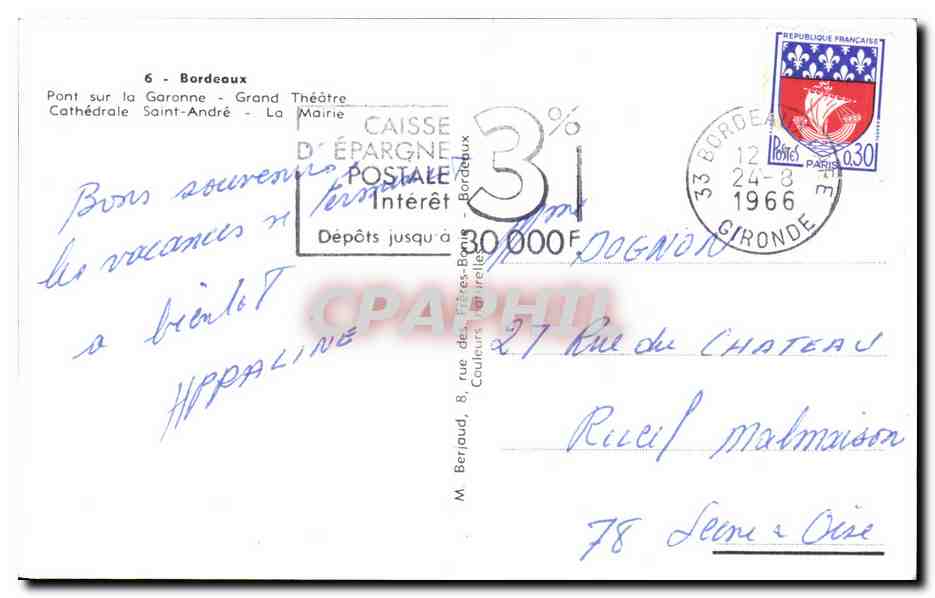 6 - Bordeaux
Pont sur la Garonne - Grand Théâtre
Cathédrale Saint-André - La Mairie
CAISSE
D'ÉPARGNE
POSTALE
Intérêt
3%
Dépôts jusqu'à 30 000F
REPUBLIQUE FRANÇAISE
POSTES
PARIS
0,30
33 BORDEAUX
12
24-8
1966
GIRONDE
Bons souvenirs
les vacances se terminent
a bientot
M. Berjaud, 8, rue des Frères-Bonie - Bordeaux
Couleurs naturelles
CPAPHIL
Mme DOGNON
27 Rue du CHATEAU
Rueil Malmaison
78 Seine & Oise